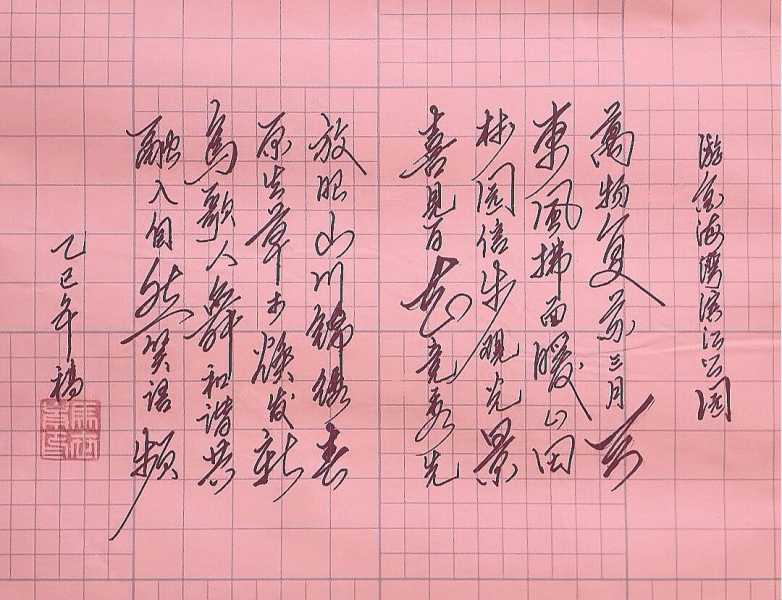 游金海湾滨江公园
萬物复苏三月天
東風拂面暖心田
林园信步观光景
喜見百花竞秀先
放眼山川锦绣春
原生草木焕发新
鸟歌人舞和谐共
融入自然笑语频
乙巳年稿